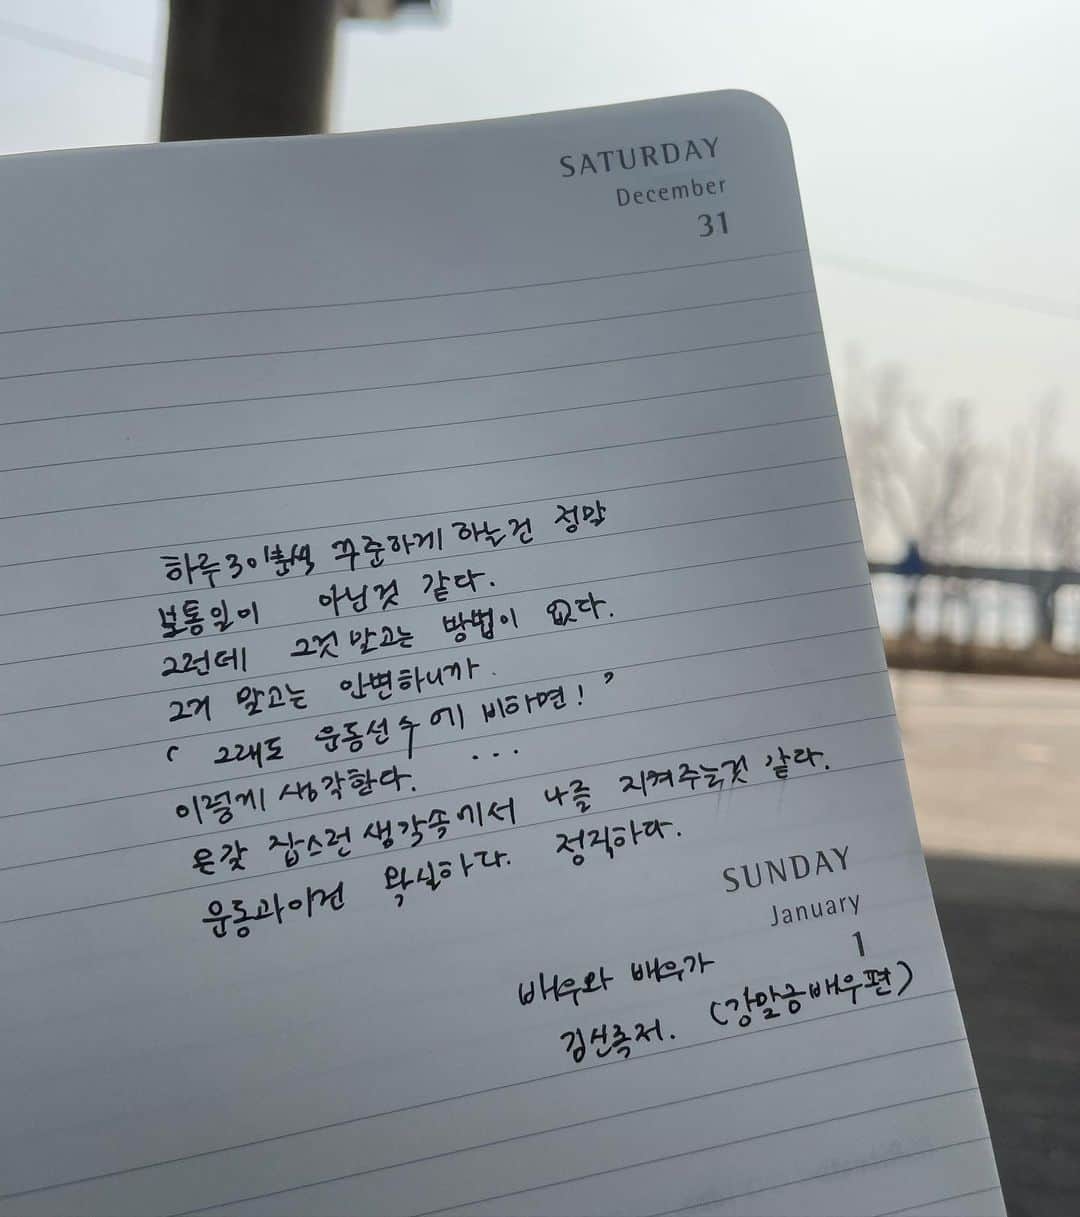 SATURDAY
December
31
하루 30분씩 꾸준하게 하는건 정말
보통일이 아닌것 같다.
그런데 그것 말고는 방법이 없다.
그거 말고는 안변하니까.
' 그래도 운동선수에 비하면! '
이렇게 생각한다. ...
온갖 잡스런 생각속에서 나를 지켜주는것 같다.
운동과 이건 확실하다. 정직하다.
SUNDAY
January
1
배우와 배우가
김신록저. (강말금배우편)